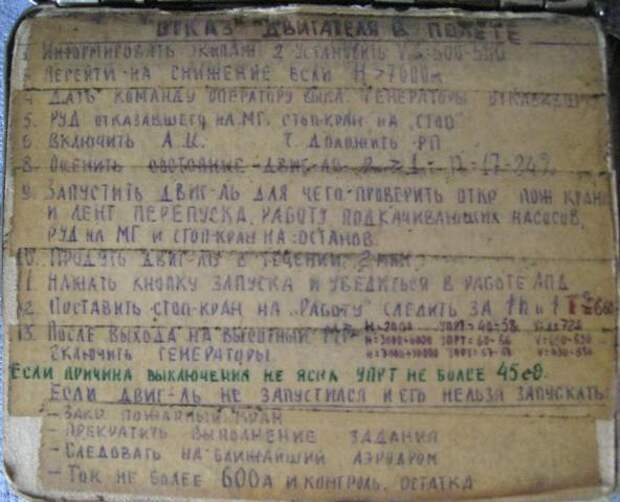 ОТКАЗ ДВИГАТЕЛЯ В ПОЛЕТЕ
1. ИНФОРМИРОВАТЬ ЭКИПАЖ 2 УСТАНОВИТЬ
ПЕРЕЙТИ НА СНИЖЕНИЕ ЕСЛИ H > 7000м
4 ДАТЬ КОМАНДУ ОПЕРАТОРУ ВЫКЛ. ГЕНЕРАТОРЫ
5. РУД ОТКАЗАВШЕГО НА МГ. СТОП-КРАН НА „СТОП"
6 ВКЛЮЧИТЬ А.Ц. 7. ДОЛОЖИТЬ РП
8. ОЦЕНИТЬ СОСТОЯНИЕ ДВИГ-ЛЯ
9. ЗАПУСТИТЬ ДВИГ-ЛЬ ДЛЯ ЧЕГО ПРОВЕРИТЬ ОТКР. ПОЖ КРАНА
И ЛЕНТ ПЕРЕПУСКА, РАБОТУ ПОДКАЧИВАЮЩИХ НАСОСОВ,
РУД НА МГ И СТОП-КРАН НА ОСТАНОВ.
10. ПРОДУТЬ ДВИГ-ЛЬ В ТЕЧЕНИИ 2 МИН
11. НАЖАТЬ КНОПКУ ЗАПУСКА И УБЕДИТЬСЯ В РАБОТЕ АПД
12. ПОСТАВИТЬ СТОП-КРАН НА „РАБОТУ" СЛЕДИТЬ ЗА
13. ПОСЛЕ ВЫХОДА НА ВЫСОТНЫЙ МГ
ВКЛЮЧИТЬ ГЕНЕРАТОРЫ.
ЕСЛИ ПРИЧИНА ВЫКЛЮЧЕНИЯ НЕ ЯСНА УПРТ НЕ БОЛЕЕ 45 ед.
ЕСЛИ ДВИГ-ЛЬ НЕ ЗАПУСТИЛСЯ И ЕГО НЕЛЬЗЯ ЗАПУСКАТЬ:
- ЗАКР ПОЖАРНЫЙ КРАН
- ПРЕКРАТИТЬ ВЫПОЛНЕНИЕ ЗАДАНИЯ
- СЛЕДОВАТЬ НА БЛИЖАЙШИЙ АЭРОДРОМ
- ТОК НЕ БОЛЕЕ 600А И КОНТРОЛЬ. ОСТАТКА